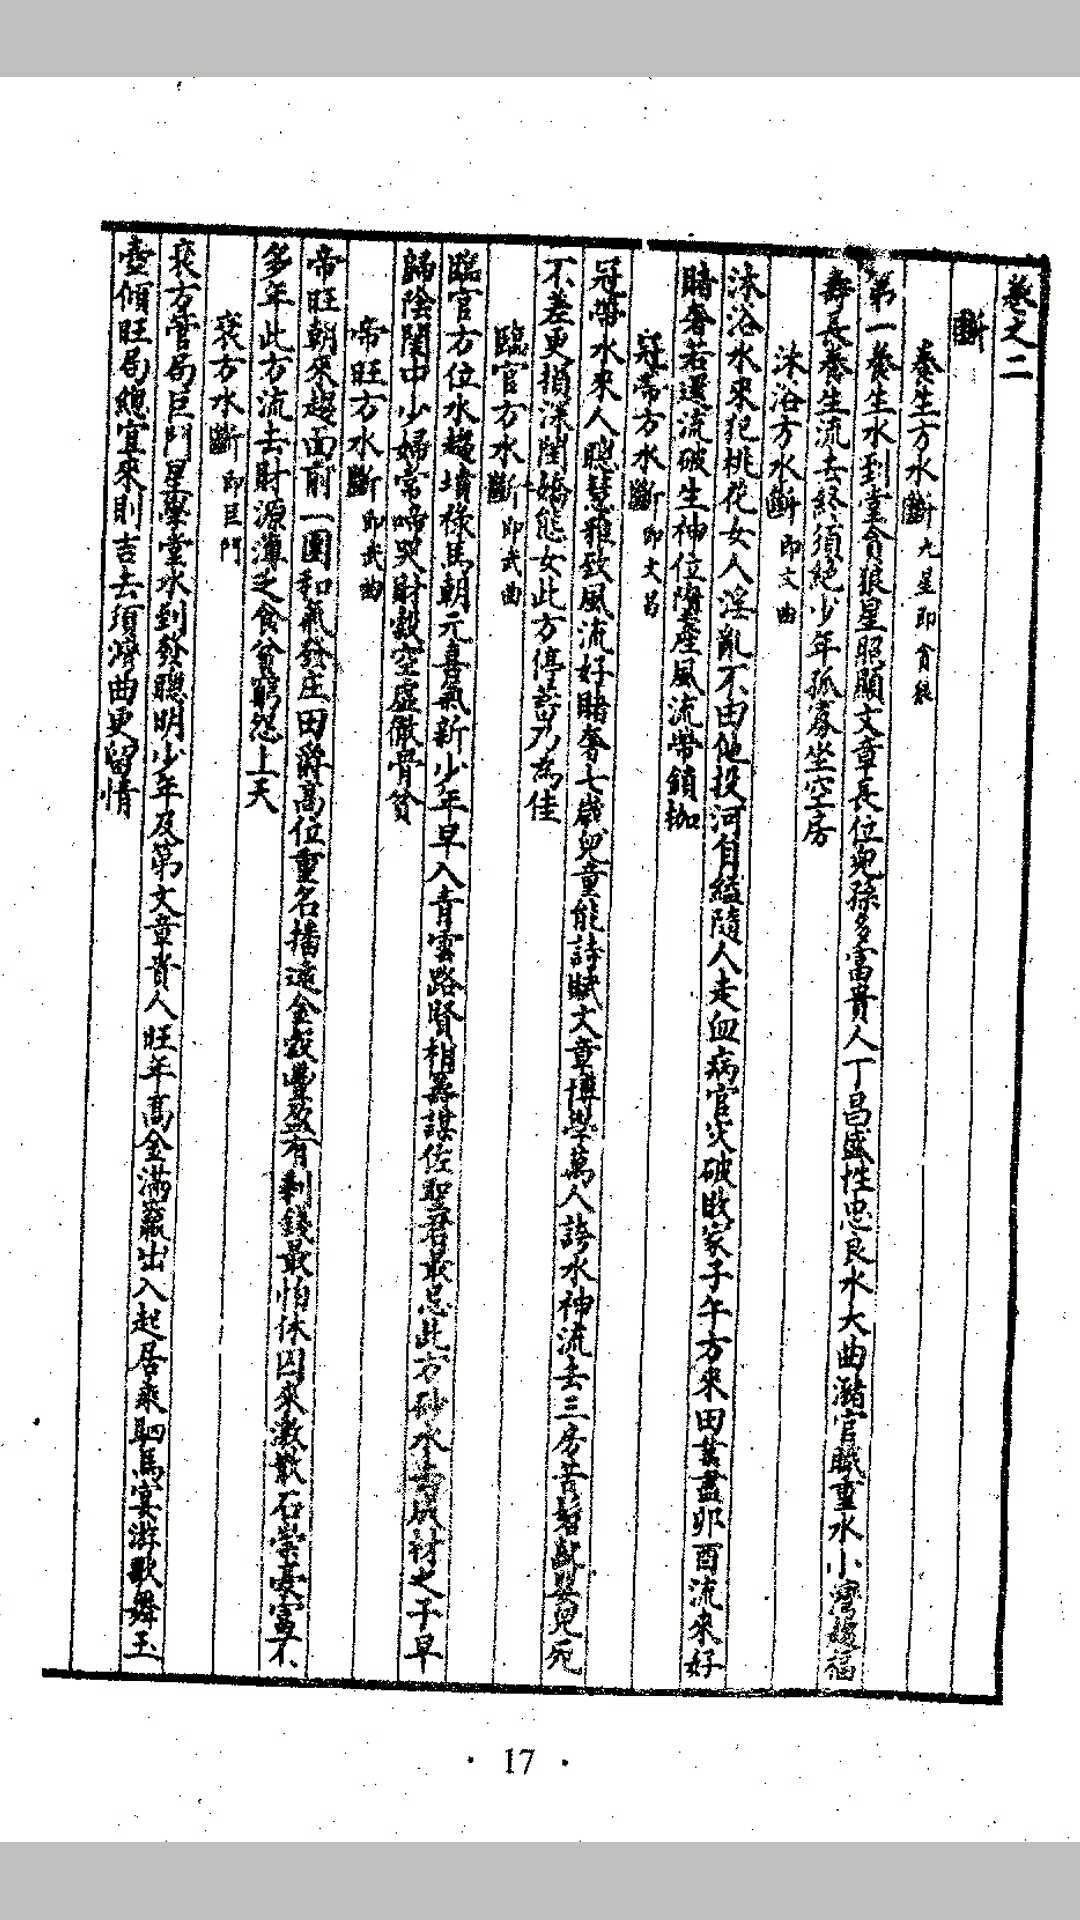 卷之二
斷
養生方水斷 九星即貪狼
第一養生水到堂貪狼星照顯文章長位兒孫多富貴人丁昌盛性忠良水大曲瀦官職重水小灣趨福
壽長養生流去終須絕少年孤寡坐空房
沐浴方水斷 即文曲
沐浴水來犯桃花女人淫亂不由他投河自縊隨人走血病官災破敗家子午方來田業盡卯酉流來好
賭奢若還流破生神位墮產風流帶鎖枷
冠帶方水斷 即文昌
冠帶水來人聰慧雅致風流好賭奢七歲兒童能詩賦文章博學萬人誇水神流去三房苦髫齡嬰兒死
不差更損深閨嬌態女此方停蓄乃為佳
臨官方水斷 即武曲
臨官方位水趨墳祿馬朝元喜氣新少年早入青雲路賢相籌謀佐聖君最忌此方砂水成材之子早
歸陰閨中少婦常啼哭財穀空虛徹骨貧
帝旺方水斷 即武曲
帝旺朝來趨面前一團和氣發庄田爵高位重名播遠金穀豐盈有剩錢最怕休囚來激散石崇豪富不
多年此方流去財源薄乏食貧窮怨上天
衰方水斷 即巨門
衰方管局巨門星學堂水到發聰明少年及第文章貴人旺年高金滿籯出入起居乘駟馬宴游歌舞玉
壺傾旺局總宜來則吉去須濟曲更留情
· 17 ·